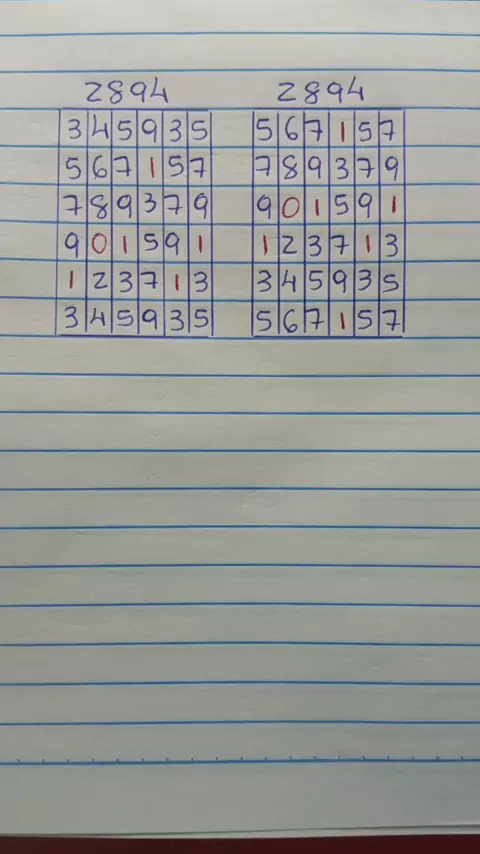 2894 2894
3 4 5 9 3 5 5 6 7 1 5 7
5 6 7 1 5 7 7 8 9 3 7 9
7 8 9 3 7 9 9 0 1 5 9 1
9 0 1 5 9 1 1 2 3 7 1 3
1 2 3 7 1 3 3 4 5 9 3 5
3 4 5 9 3 5 5 6 7 1 5 7